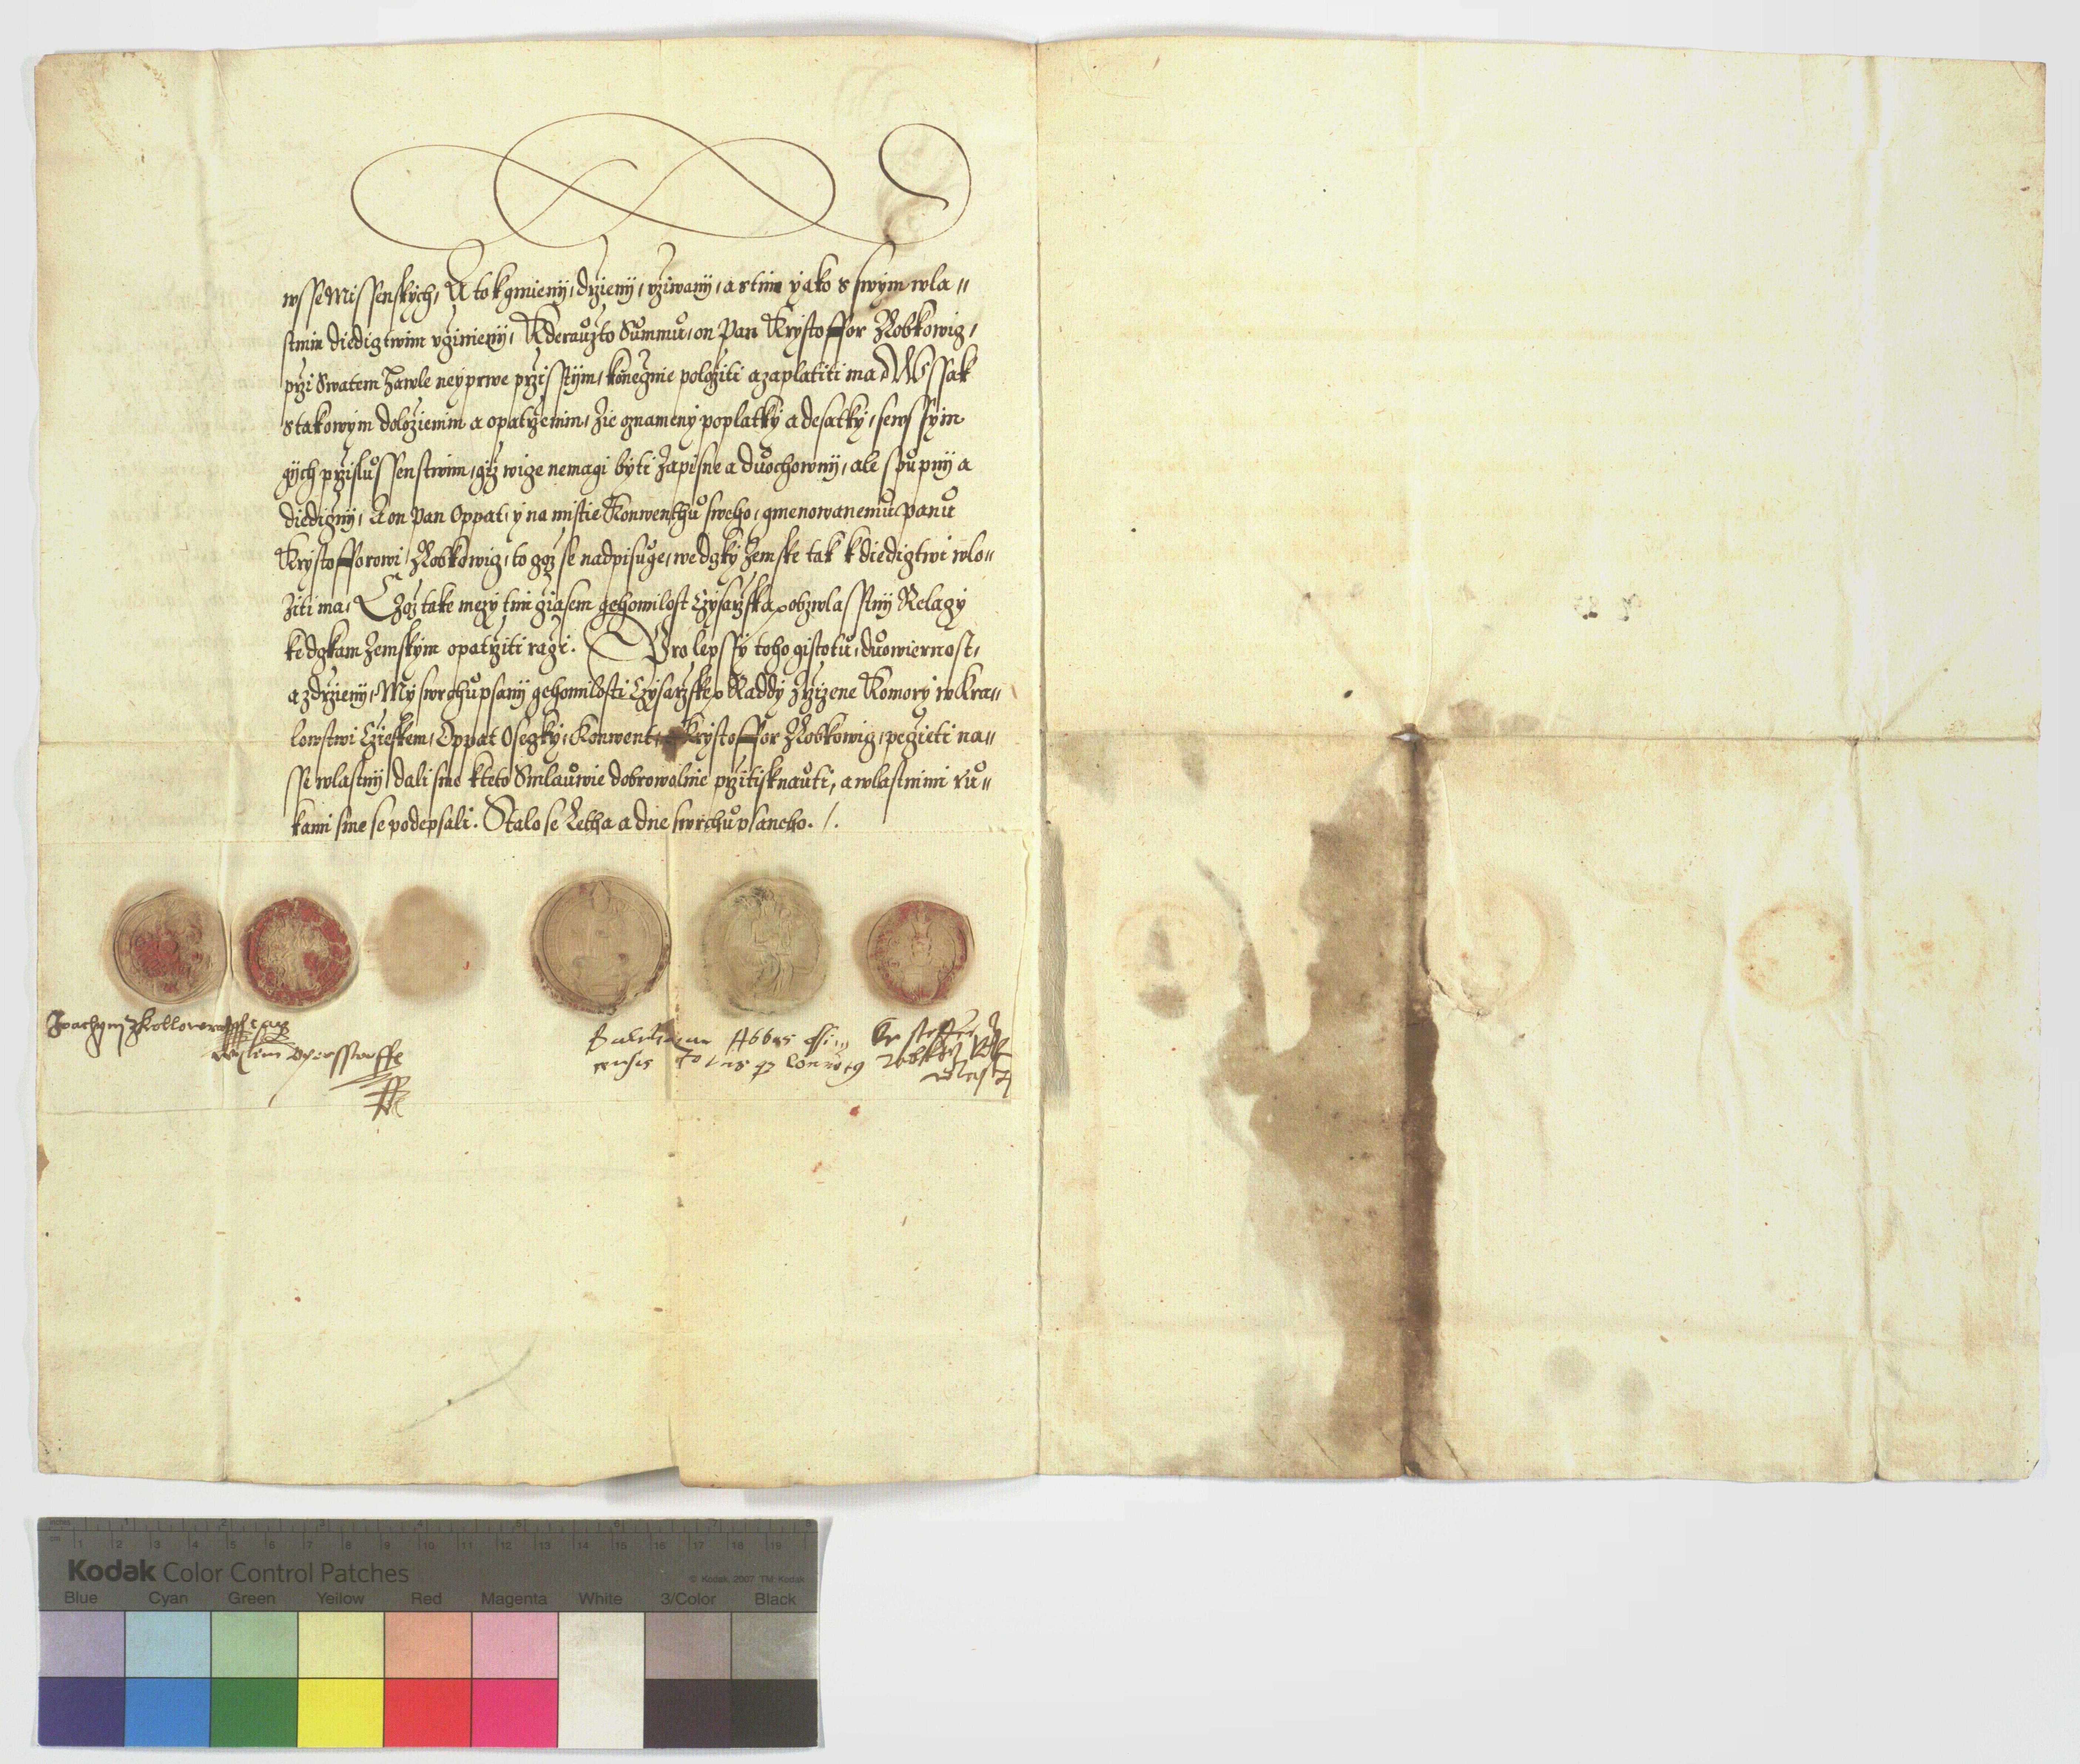 wsse Missenskych, A to k gmieny, drzieny, vziwany, a s tim yako s swym wla=
stnim diedigtwim vginieny, Kderauzto Summu, on Pan Krystoffor Lobkowig,
przi Swatem Hawle neyprwe przisstym, konegnie poloziti a zaplatiti ma, Wssak
s takowym dolozienim a opatrzenim, zie gnameny poplatky a desatky, se wssym
gych przislussenstwim, giz wige nemagi byti zapisne a duochowny, ale spupny a
diedigny, A on Pan Oppat, y na mistie Konwenthu sweho, gmenowanemu Panu
Krystofforowi Lobkowig, to gez se nadpisuge, we dgky Zemske tak k diedigtwi wlo=
ziti ma, Czoz take mezy tim giasem geho milost Czysarzska, obzwlasstny Relagy
ke dgkam Zemskym opatrziti ragi. Pro lepssy toho gistotu, duowiernost,
a zdrzieny, My swrchupsany geho milosti Czysarzske Raddy zrzizene Komory w Kra=
lowstwi Czieskem, Oppat Osegky, Konwent, Krystoffor Lobkowig, pegieti na=
sse wlastny, dali sme k teto Smlauwie dobrowolnie przitisknauti, a wlastnimi ru=
kami sme se podepsali. Stalo se Letha a dne swrchupsaneho. /.
Joachym z Kollowrat
Wylem Opersstorffe
Abbas
Kodak Color Control Patches
© Kodak, 2007 TM: Kodak
Blue Cyan Green Yellow Red Magenta White 3/Color Black